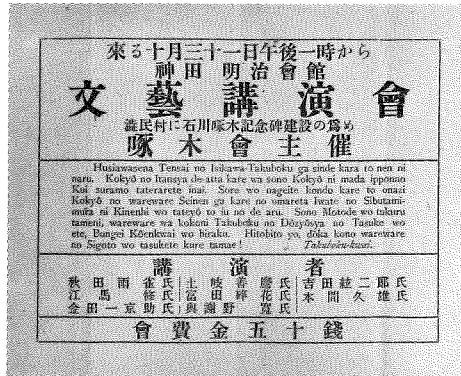 來る十月三十一日午後一時から
神田 明治會館
文藝講演會
澁民村に石川啄木記念碑建設の爲め
啄木會主催
Husiawasena Tensai no Isikawa-Takuboku ga sinde kara to nen ni
naru. Kokyō no Itansya de atta kare wa sono Kokyō ni mada ipponno
Kui suramo taterarete inai. Soro wo nageite kondo kare to onazi
Kokyō no wareware Seinen ga kare no umareta Iwate no Sibutami-
mura ni Kinenhi wo tateyō to iu no de aru. Sono Motode wo tukuru
tameni, wareware wa kokoni Takuboku no Dōzyōsya no Tasuke wo
ete, Bungei Kōenkwai wo hiraku. Hitobito yo, dōka kono wareware
no Sigoto wo tasukete kure tamae! Takuboku-kwai.
講演者
秋田雨雀氏 土岐善麿氏 吉田絃二郎氏
江馬 修氏 富田碎花氏 本間久雄氏
金田一京助氏 與謝野 寛氏
會費金五十錢